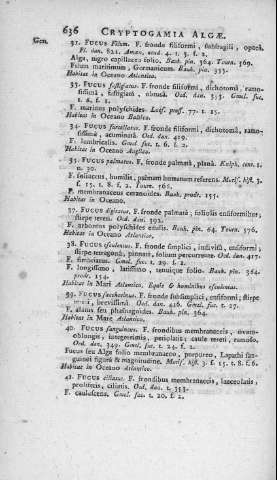 636 CRYPTOGAMIA ALGÆ.
Gen. 32. FUCUS Filum. F. fronde filiformi, subfragili, opaca.
Fl. dan. 821. Amœn. acad. 4. t. 3. f. 2.
Alga, nigro capillaceo folio. Bauh. pin. 364. Tourn. 569.
Filum maritimum, Germanicum. Bauh. pin. 333.
Habitat in Oceano Atlantico.
33. FUCUS fastigiatus. F. fronde filiformi, dichotomâ, ramo-
sissimâ, fastigiatâ, obtusâ. Oed. dan. 393. Gmel. fuc.
t. 6. f. 1.
F. marinus polyschides. Loes. pruss. 77. t. 15.
Habitat in Oceano
34. FUCUS furcellatus. F. fronde filiformi, dichotomâ, ramo-
sissimâ, acuminatâ. Oed. dan. 419.
F. lumbricalis. Gmel. fuc. t. 6. f. 2.
Habitat in Oceano
35. FUCUS palmatus. F. fronde palmatâ, planâ. Kniph. cent. 1.
n. 30.
F. foliaceus, humilis, palmam humanam referens. Moris. hist. 3.
f. 15. t. 8. f. 2. Tourn. 566.
F. membranaceus ceranoides. Bauh. prodr. 155.
Habitat in Oceano.
37. FUCUS digitatus. F. fronde palmatâ, foliolis ensiformibus,
stipite tereti. Oed. dan. 392.
F. arboreus polyschides edulis. Bauh. pin. 64. Tourn. 576.
Habitat in Oceano Atlantico.
38. FUCUS esculentus. F. fronde simplici, indivisâ, ensiformi,
stipite tetragono, pinnato, folium percurrente. Oed. dan. 417.
F. fimbriatus. Gmel. fuc. t. 29. f. 2.
F. longissimo, latissimo, tenuique folio. Bauh. pin. 364.
prodr. 154.
Habitat in Mari Atlantico, Equis & hominibus esculentus.
39. FUCUS saccharinus. F. fronde subsimplici, ensiformi, stipite
tereti, brevissimo. Oed. dan. 416. Gmel. fuc. t. 27.
F. alatus seu phasganoides. Bauh. pin. 364.
Habitat in Mare Atlantico.
40. FUCUS sanguineus. F. frondibus membranaceis, ovato-
oblongis, integerrimis, petiolatis; caule tereti, ramoso.
Oed. dan. 349. Gmel. fuc. t. 24. f. 2.
Fucus seu Alga folio membranaceo, purpureo, Lapathi san-
guinei figurâ & magnitudine. Moris. hist. 3. f. 15. t. 8. f. 6.
Habitat in Oceano Atlantico.
41. FUCUS ciliatus. F. frondibus membranaceis, lanceolatis,
proliferis, ciliatis. Oed. dan. t. 353.
F. caulescens. Gmel. fuc. t. 20. f. 2.